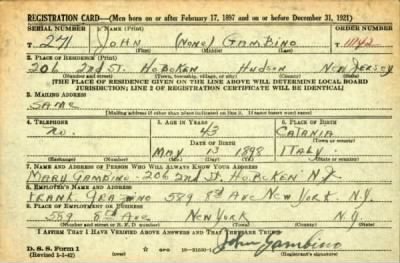 REGISTRATION CARD—(Men born on or after February 17, 1897 and on or before December 31, 1921)
SERIAL NUMBER 1. NAME (Print) ORDER NUMBER
T 271 JOHN (NONE) GAMBINO 11142
(First) (Middle) (Last)
2. PLACE OF RESIDENCE (Print)
206 2nd ST. HOBOKEN HUDSON NEW JERSEY
(Number and street) (Town, township, village, or city) (County) (State)
[THE PLACE OF RESIDENCE GIVEN ON THE LINE ABOVE WILL DETERMINE LOCAL BOARD
JURISDICTION; LINE 2 OF REGISTRATION CERTIFICATE WILL BE IDENTICAL]
3. MAILING ADDRESS
SAME
[Mailing address if other than place indicated on line 2. If same insert word same]
4. TELEPHONE 5. AGE IN YEARS 6. PLACE OF BIRTH
NO. 43 CATANIA
DATE OF BIRTH (Town or county)
MAY 13 1898 ITALY
(Exchange) (Number) (Mo.) (Day) (Yr.) (State or country)
7. NAME AND ADDRESS OF PERSON WHO WILL ALWAYS KNOW YOUR ADDRESS
MARY GAMBINO - 206 2nd ST. HOBOKEN N.J.
8. EMPLOYER'S NAME AND ADDRESS
FRANK 589 8th AVE NEW YORK N.Y.
9. PLACE OF EMPLOYMENT OR BUSINESS
589 8th AVE NEW YORK N.Y.
(Number and street or R. F. D. number) (Town) (County) (State)
I AFFIRM THAT I HAVE VERIFIED ABOVE ANSWERS AND THAT THEY ARE TRUE.
D. S. S. Form 1
(Revised 1-1-42) (over) John Gambino
(Registrant's signature)